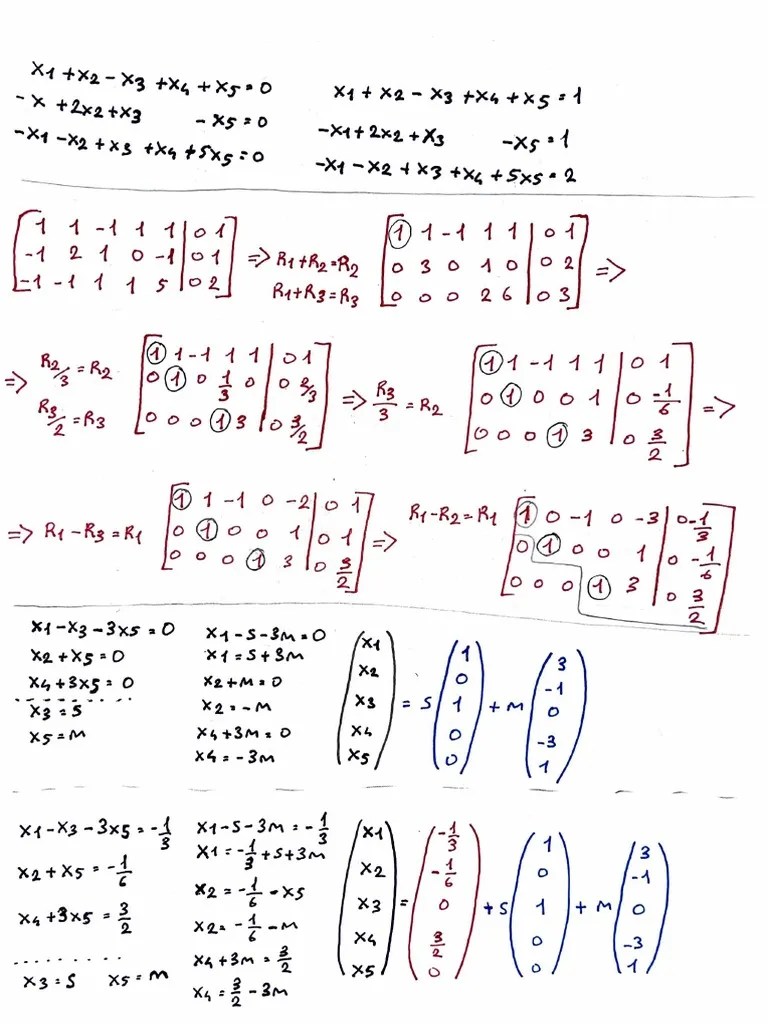 x1 + x2 - x3 + x4 + x5 = 0
-x + 2x2 + x3 - x5 = 0
-x1 - x2 + x3 + x4 + 5x5 = 0
x1 + x2 - x3 + x4 + x5 = 1
-x1 + 2x2 + x3 - x5 = 1
-x1 - x2 + x3 + x4 + 5x5 = 2
1 1 -1 1 1 | 0 1
-1 2 1 0 -1 | 0 1
-1 -1 1 1 5 | 0 2
=> R1+R2=R2
R1+R3=R3
1 1 -1 1 1 | 0 1
0 3 0 1 0 | 0 2
0 0 0 2 6 | 0 3
=>
=> R2/3 = R2
R3/2 = R3
1 1 -1 1 1 | 0 1
0 1 0 1/3 0 | 0 2/3
0 0 0 1 3 | 0 3/2
=> R3/3 = R2
1 1 -1 1 1 | 0 1
0 1 0 0 1 | 0 -1/6
0 0 0 1 3 | 0 3/2
=>
=> R1-R3=R1
1 1 -1 0 -2 | 0 1
0 1 0 0 1 | 0 1
0 0 0 1 3 | 0 3/2
=>
R1-R2=R1
1 0 -1 0 -3 | 0 -1/3
0 1 0 0 1 | 0 -1/6
0 0 0 1 3 | 0 3/2
x1 - x3 - 3x5 = 0
x2 + x5 = 0
x4 + 3x5 = 0
x3 = S
x5 = M
x1 - S - 3M = 0
x1 = S + 3M
x2 + M = 0
x2 = -M
x4 + 3M = 0
x4 = -3M
(x1 x2 x3 x4 x5) = S (1 0 1 0 0) + M (3 -1 0 -3 1)
x1 - x3 - 3x5 = -1/3
x2 + x5 = -1/6
x4 + 3x5 = 3/2
x3 = S x5 = M
x1 - S - 3M = -1/3
x1 = -1/3 + S + 3M
x2 = -1/6 - x5
x2 = -1/6 - M
x4 + 3M = 3/2
x4 = 3/2 - 3M
(x1 x2 x3 x4 x5) = (-1/3 -1/6 0 3/2 0) + S (1 0 1 0 0) + M (3 -1 0 -3 1)